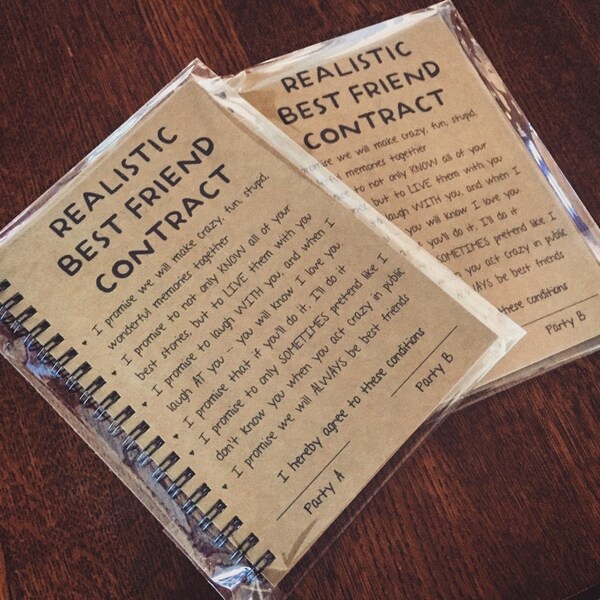 REALISTIC
BEST FRIEND
CONTRACT
I promise we will make crazy, fun, stupid,
wonderful memories together
I promise to not only KNOW all of your
best stories, but to LIVE them with you
I promise to laugh WITH you, and when I
laugh AT you -- you will know I love you.
I promise that if you'll do it, I'll do it
I promise to only SOMETIMES pretend like I
don't know you when you act crazy in public
I promise we will ALWAYS be best friends
I hereby agree to these conditions
Party A Party B
REALISTIC
BEST FRIEND
CONTRACT
we will make crazy, fun, stupid,
memories together
to not only KNOW all of your
but to LIVE them with you
laugh WITH you, and when I
you will know I love you.
you'll do it, I'll do it
SOMETIMES pretend like I
you act crazy in public
be best friends
these conditions
Party B